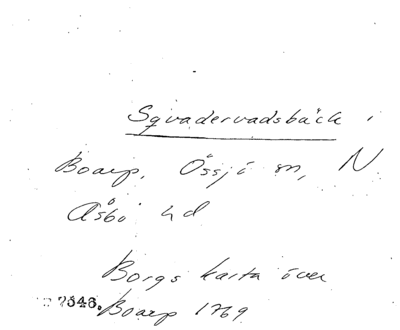 Sqvadervadsbäck i
Boarp, Össjö sn, N
Åsbo hd
Borgs karta över
7646. Boarp 1769